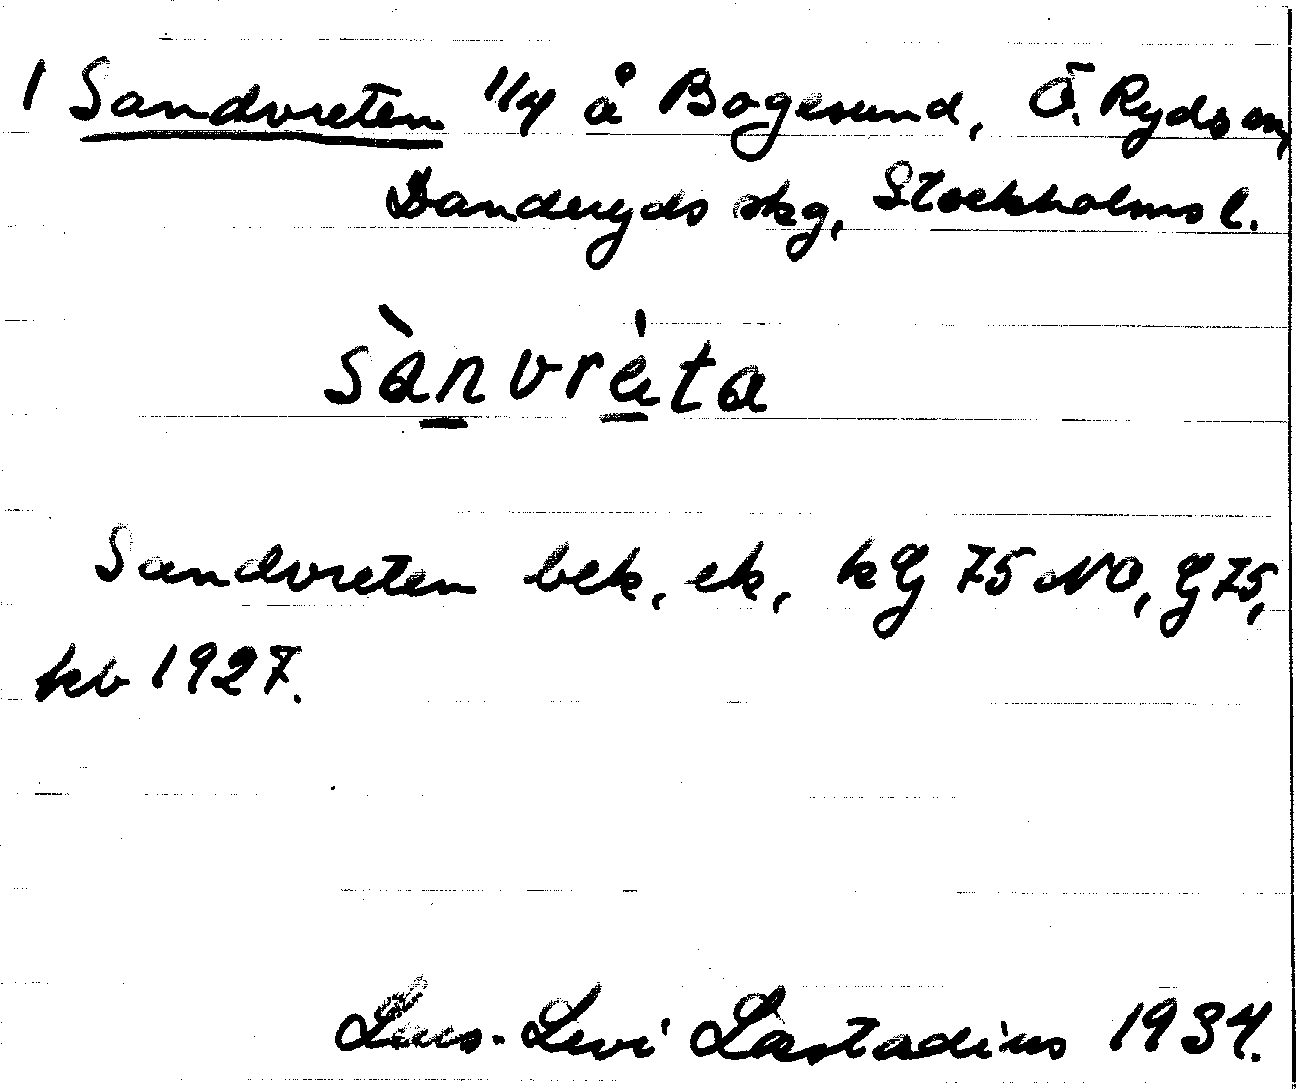 1 Sandvreten 1/4 å Bogesund, Ö. Ryds sn,
Danderyds skg, Stockholms l.
sànvrèta
Sandvreten bek, ek, kG 75 NO, G 75,
kb 1927.
Lars-Levi Læstadius 1934.